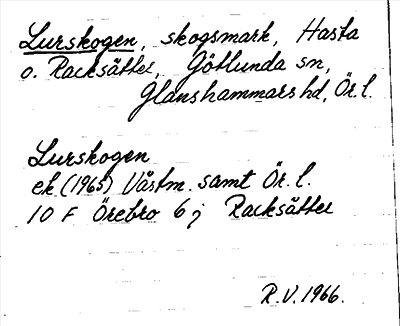 Lurskogen, skogsmark, Hasta
o. Racksätter, Götlunda sn,
Glanshammars hd, Ör. l.
Lurskogen
ek (1965) Västm. samt Ör. l.
10 F Örebro 6 j Racksätter
R.V. 1966.